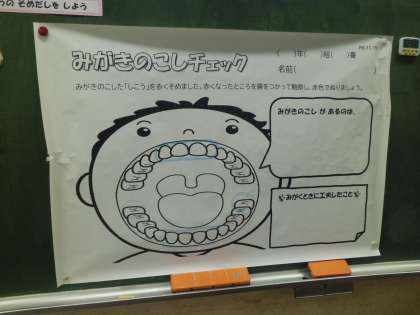 の そめだしを しよう
みがきのこしチェック
（　）年（　）組（　）番
名前（　　　　　）
みがきのこした「しこう」を赤くそめました。赤くなったところを鏡をつかって観察し、赤色でぬりましょう。
みがきのこし が あるのは、
みがくときに工夫したこと